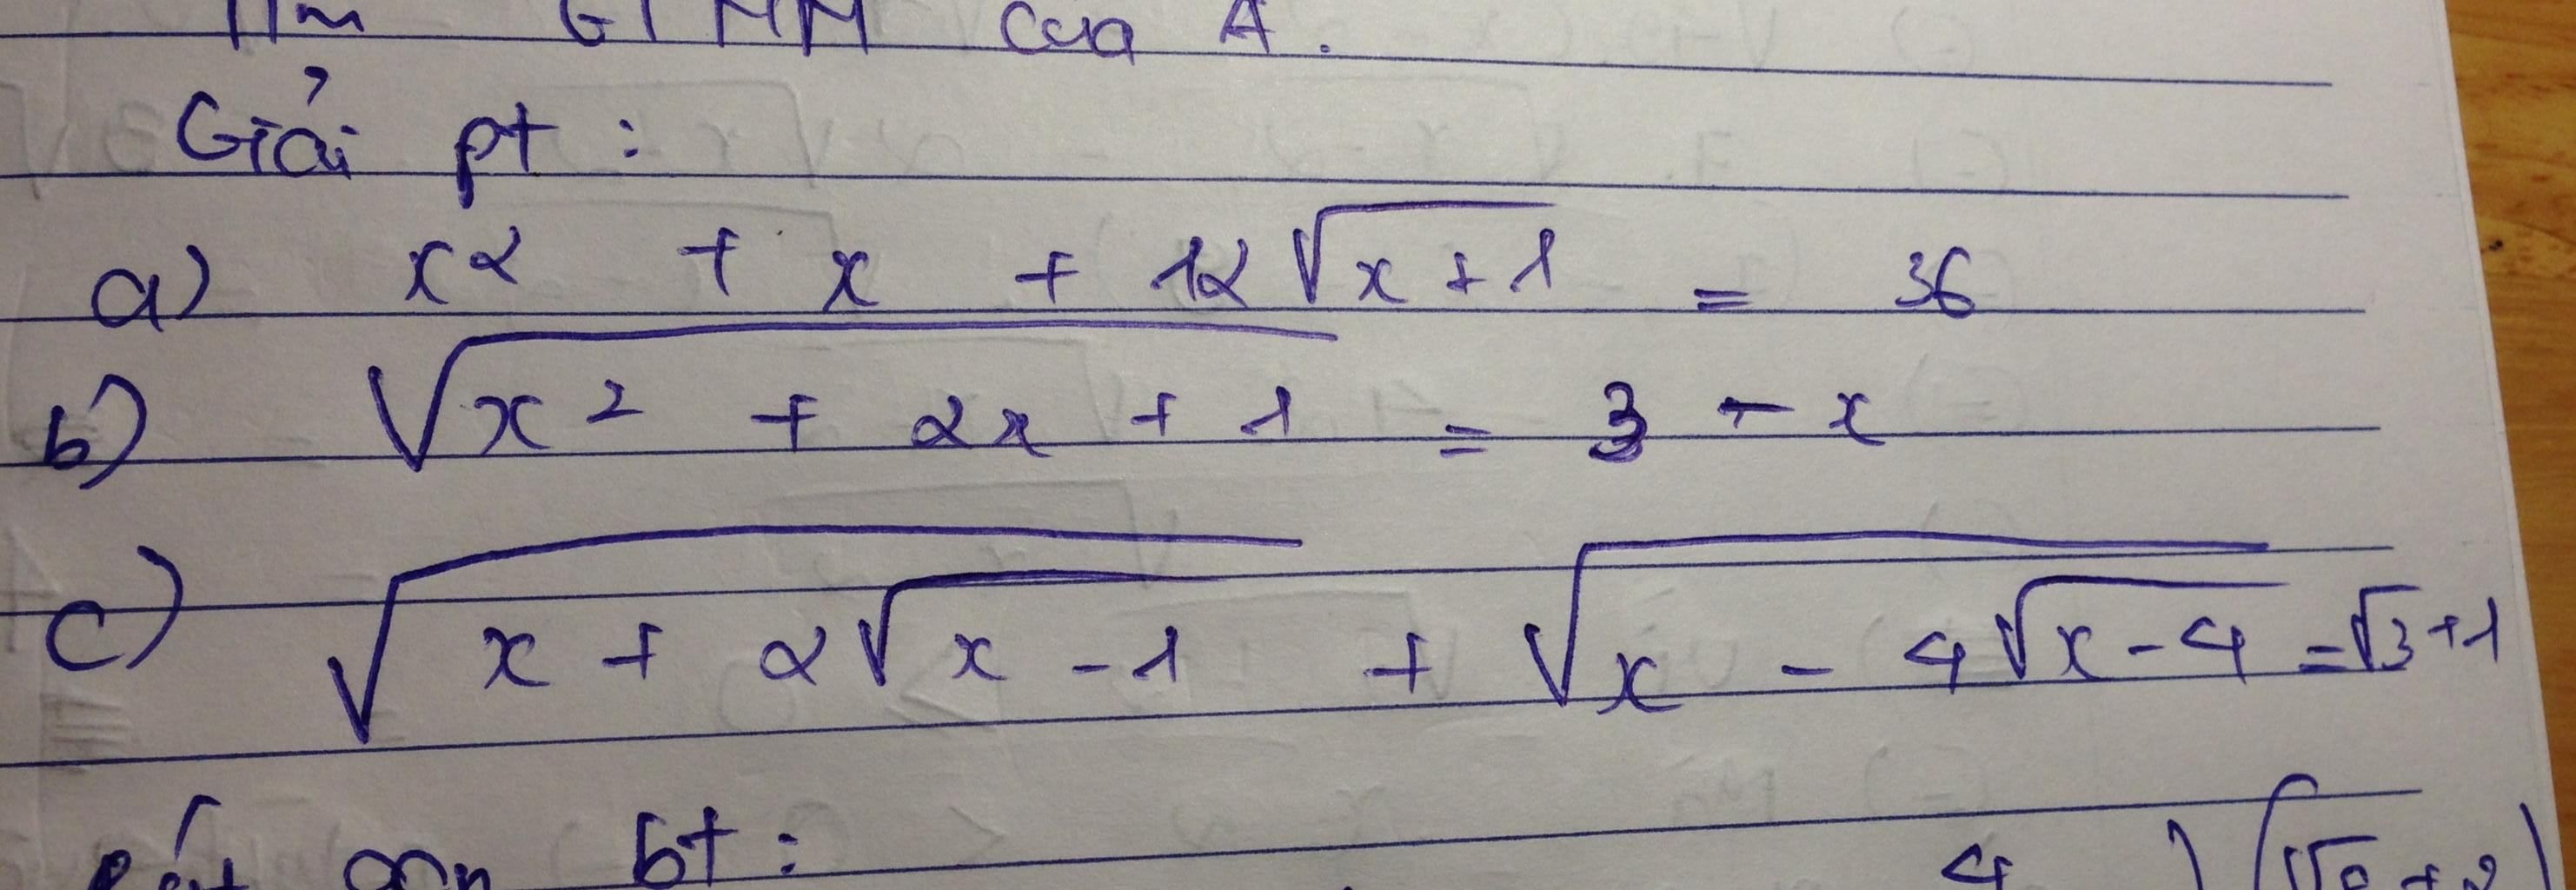 Tìm GTNN của A.
Giải pt :
a) x² + x + 12√(x+1) = 36
b) √(x² + 2x + 1) = 3 - x
c) √(x + 2√(x-1)) + √(x - 4√(x-4)) = √3+1
Rút gọn bt :